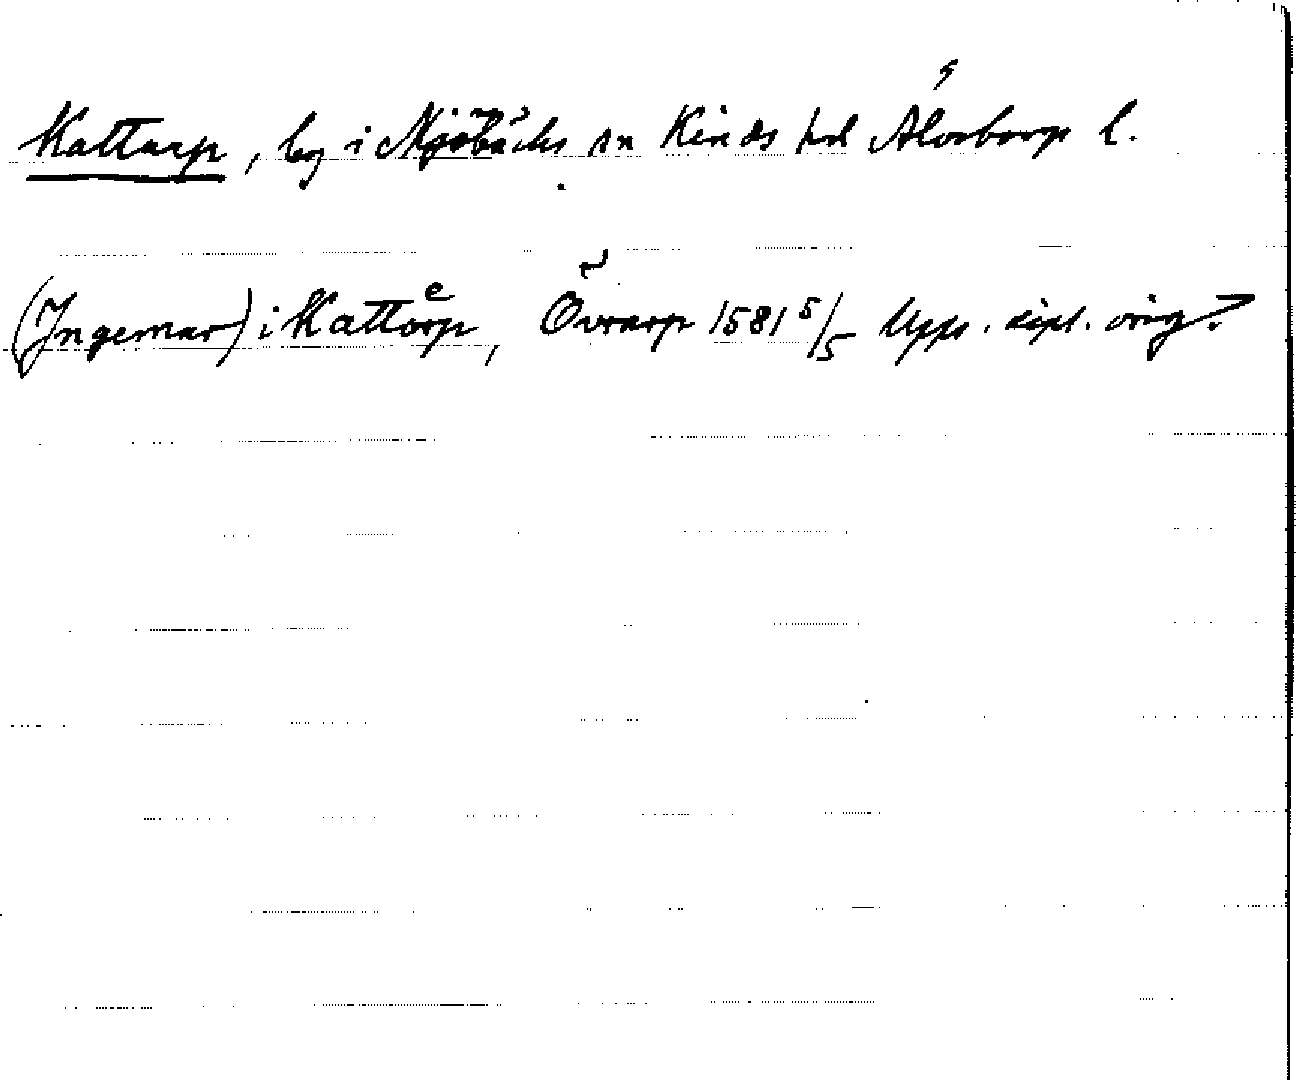 Kattarp, by i Mjöbäcks sn Kinds hd Älvsborgs l.
(Ingemar) i Kattorp, Övrarp 1581 5/5 Upps. dipl. orig.